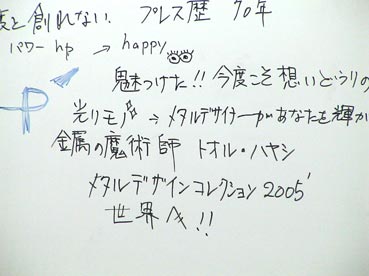 度と創れない プレス歴 70年
パワー hp → happy
魅つけた!! 今度こそ想いどうりの
光りモノ → メタルデザイナーがあなたを輝か
P
金属の魔術師 トオル・ハヤシ
メタルデザインコレクション 2005'
世界へ!!